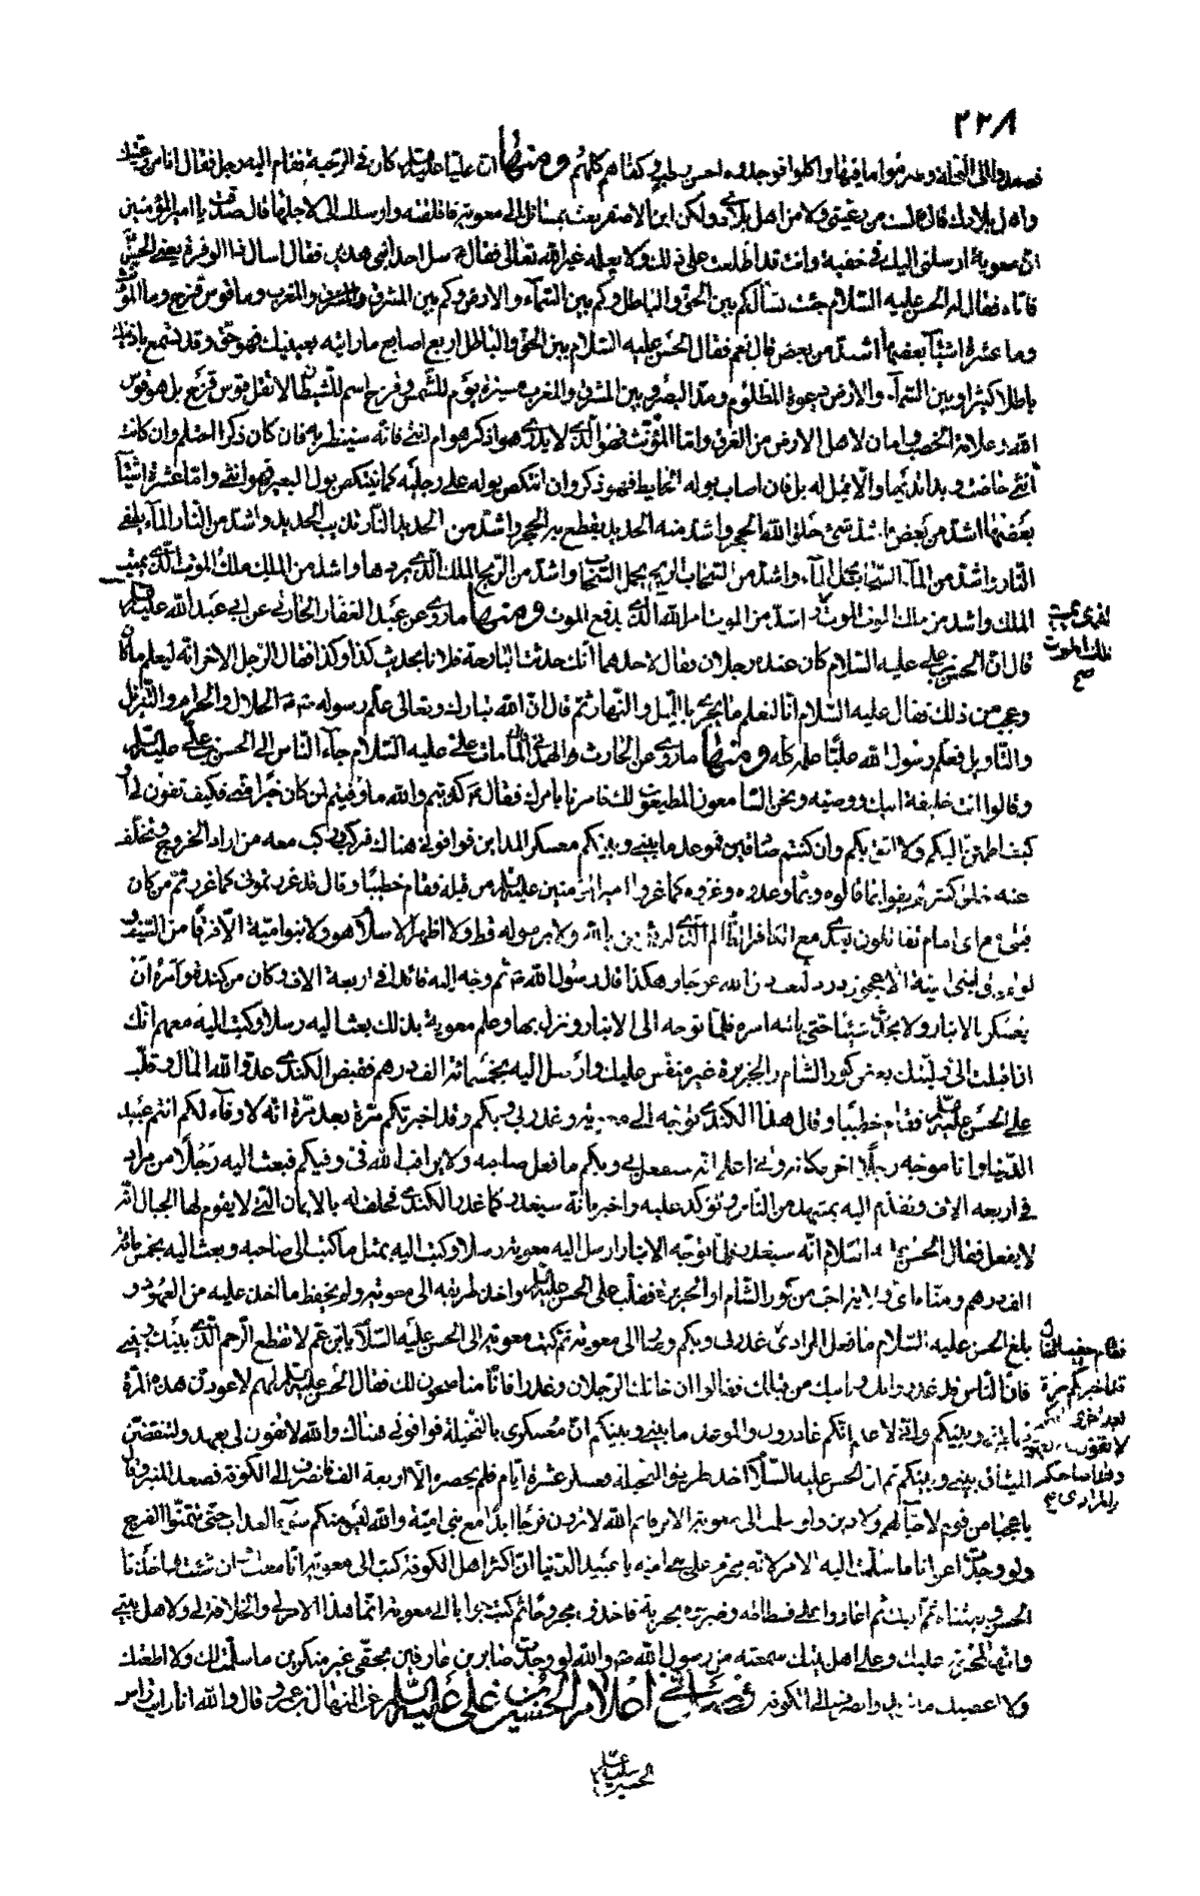 ٢٢٨
فصعدوا الى النخلة وصرموا ما فيها واكلوا فوجدوه احسن رطب كفاهم كلهم ومنها ان عليا عليه السلام كان في الرحبة فقام اليه رجل فقال انا من رعيتك
واهل بلادك قال لست من رعيتي ولا من اهل بلادي ولكن ابن الاصفر بعث بمسائل الى معوية فاقلقته وارسلك الى لاجلها قال صدقت يا امير المؤمنين
ان معوية ارسلني اليك في خفية وانت قد اطلعت على ذلك ولا يعلمه غير الله تعالى فقال سل احد ابني هذين فقال اسال ذا الوفرة يعني الحسن
فاتاه فقال له الحسن عليه السلام جئت تسأل كم بين الحق والباطل وكم بين السماء والارض وكم بين المشرق والمغرب وما قوس قزح وما المؤنث
وما عشرة اشياء بعضها اشد من بعض قال نعم فقال الحسن عليه السلام بين الحق والباطل اربع اصابع ما رايته بعينيك فهو حق وقد تسمع باذنيك
باطلا كثيرا وبين السماء والارض دعوة المظلوم ومد البصر وبين المشرق والمغرب مسيرة يوم للشمس وقزح اسم للشيطان لا تقل قوس قزح بل هو قوس
الله وعلامة الخصب وامان لاهل الارض من الغرق واما المؤنث فهو الذي لا يدرى هو اذكر هو ام انثى فانه سينظر به فان كان ذكرا احتلم وان كانت
انثى حاضت وبدا ثديها والا قيل له بل فان اصاب بوله الحايط فهو ذكر وان انتكص بوله على رجليه كما ينتكص بول البعير فهو انثى واما عشرة اشياء
بعضها اشد من بعض اشد شئ خلق الله الحجر واشد منه الحديد يقطع به الحجر واشد من الحديد النار تذيب الحديد واشد من النار الماء يطفئ
النار واشد من الماء السحاب يحمل الماء واشد من السحاب الريح يحمل السحاب واشد من الريح الملك الذي يردها واشد من الملك ملك الموت الذي يميت
الملك واشد من ملك الموت الموت واشد من الموت امر الله الذي يدفع الموت ومنها ما روى عن عبد الغفار الحارثي عن ابي عبد الله عليه السلام
الذي يميت
ملك الموت
صح
قال ان الحسن بن علي عليه السلام كان عنده رجلان فقال لاحدهما انك حدثت البارحة فلانا بحديث كذا وكذا فقال الرجل الاخر انه ليعلم ما كان
وعجب من ذلك فقال عليه السلام انا لنعلم ما يجري بالليل والنهار ثم قال ان الله تبارك وتعالى علم رسوله الحلال والحرام والتنزيل
والتأويل فعلم رسول الله عليا علمه كله ومنها ما روى عن الحارث الهمداني قال لما مات علي عليه السلام جاء الناس الى الحسن بن علي عليه السلام
وقالوا انت خليفة ابيك ووصيه ونحن السامعون المطيعون لك فامرنا بامرك فقال كذبتم والله ما وفيتم لمن كان خيرا مني فكيف تفون لي او
كيف اطمئن اليكم ولا اثق بكم وان كنتم صادقين فموعد ما بيني وبينكم معسكر المداين فوافوني هناك فركب وركب معه من اراد الخروج وتخلف
عنه خلق كثير لم يفوا بما قالوه وبما وعدوه وغروه كما غروا امير المؤمنين عليه السلام من قبله فقام خطيبا وقال قد غررتموني كما غررتم من كان
قبلي مع اي امام تقاتلون بعدي مع الكافر الظالم الذي لم يؤمن بالله ولا برسوله قط ولا اظهر الاسلام هو ولا بنو امية الا فرقا من السيف
ولو لم يبق لبني امية الا عجوز درداء لبغت دين الله عوجا وهكذا قال رسول الله ثم وجه اليه قائدا في اربعة الاف وكان من كندة وامره ان
يعسكر بالانبار ولا يحدث شيئا حتى يأتيه امره فلما توجه الى الانبار ونزل بها وعلم معوية بذلك بعث اليه رسلا وكتب اليه معهم انك
ان اقبلت الى وليتك بعض كور الشام والجزيرة غير منفس عليك وارسل اليه بخمسمائة الف درهم فقبض الكندي عدو الله المال وقلب
على الحسن عليه السلام فقام خطيبا وقال هذا الكندي توجه الى معوية وغدر بي وبكم وقد اخبرتكم مرة بعد مرة انه لا وفاء لكم انتم عبيد
الدنيا وانا موجه رجلا اخر مكانه واني اعلم انه سيفعل بي وبكم ما فعل صاحبه ولا يراقب الله في وفيكم فبعث اليه رجلا من مراد
في اربعة الاف وتقدم اليه بمشهد من الناس وتوكد عليه واخبره انه سيغدر كما غدر الكندي فحلف له بالايمان التي لا يقوم لها الجبال انه
لا يفعل فقال الحسن عليه السلام انه سيغدر فلما توجه الى الانبار ارسل اليه معوية رسلا وكتب اليه بمثل ما كتب الى صاحبه وبعث اليه بخمس مائة
الف درهم ومناه اي ولاية احب من كور الشام او الجزيرة فقلب على الحسن عليه السلام واخذ طريقه الى معوية ولم يحفظ ما اخذ عليه من العهود و
بلغ الحسن عليه السلام ما فعل المرادي غدر بي وبكم وصار الى معوية ثم كتب معوية الى الحسن عليه السلام يا بن عم لا تقطع الرحم الذي بينك وبيني
فقام خطيبا وقال
قد اخبرتكم مرة
بعد اخرى انكم
لا تفون بعهد
وهذا صاحبكم
المرادي
فان الناس قد غدروا بك وبابيك من قبلك فقالوا ان خانك الرجلان وغدرا فانا مناصحون لك فقال الحسن عليه السلام لهم لاعودن هذه المرة
فيما بيني وبينكم واني لاعلم انكم غادرون والموعد ما بيني وبينكم ان معسكري بالنخيلة فوافوني هناك والله لا تفون لي بعهد ولتنقضن
الميثاق بيني وبينكم ثم ان الحسن عليه السلام اخذ طريق النخيلة فعسكر عشرة ايام فلم يحضره الا اربعة الف فانصرف الى الكوفة فصعد المنبر وقال
يا عجبا من قوم لا حياء لهم ولا دين ولو سلمت الى معوية الامر فايم الله لا ترون فرجا ابدا مع بني امية والله ليسومنكم سوء العذاب حتى تتمنوا الفرج
ولو وجدت اعوانا ما سلمت اليه الامر لانه محرم على بني امية يا عبيد الدنيا ان اكثر اهل الكوفة كتب الى معوية انا معك وان شئت اخذنا
الحسن وبعثناه اليك ثم اغاروا على فسطاطه وضربوه بحربة فاخذوه مجروحا ثم كتب جوابا الى معوية انما هذا الامر لي والخلافة لي ولاهل بيتي
وانها لمحرمة عليك وعلى اهل بيتك سمعته من رسول الله والله لو وجدت صابرين عارفين بحقي غير منكرين ما سلمت لك ولا اعطيتك
ولا اعطيك ما تريد وانصرف الى الكوفة فصل في اعلام الحسين بن علي عليه السلام عن المنهال بن عمرو قال والله انا رايت راس
الحسين عليه السلام